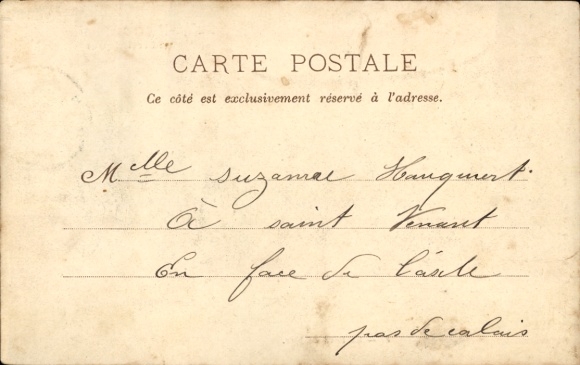 CARTE POSTALE
Ce côté est exclusivement réservé à l'adresse.
Mlle suzanne
À saint Venant
En face de l'asile
pas de calais